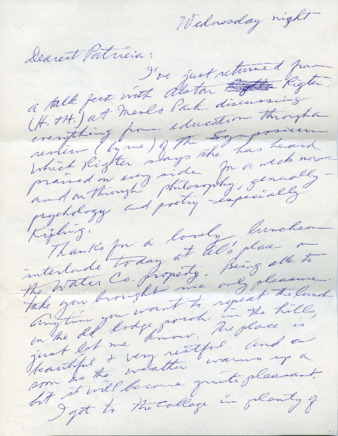 Wednesday night
Dearest Patricia:
I've just returned from
a talk fest with Alstar Rigter.
(H. & H.) at Menlo Park discussing
everything from education through a
review (by me) of the Symposium
which Rigter says she has heard
praised on every side for a week now
and on through philosophy, generally -
psychology and poetry - especially
Kipling.
Thanks for a lovely luncheon
interlude today at Al's place on
the Water Co. property. Being able to
take you brought me only pleasure.
Anytime you want to repeat the lunch
on the old lodge porch in the hills,
just let me know. The place is
beautiful & very restful and as
soon as the weather warms up a
bit it will become quite pleasant.
I got to the College in plenty of